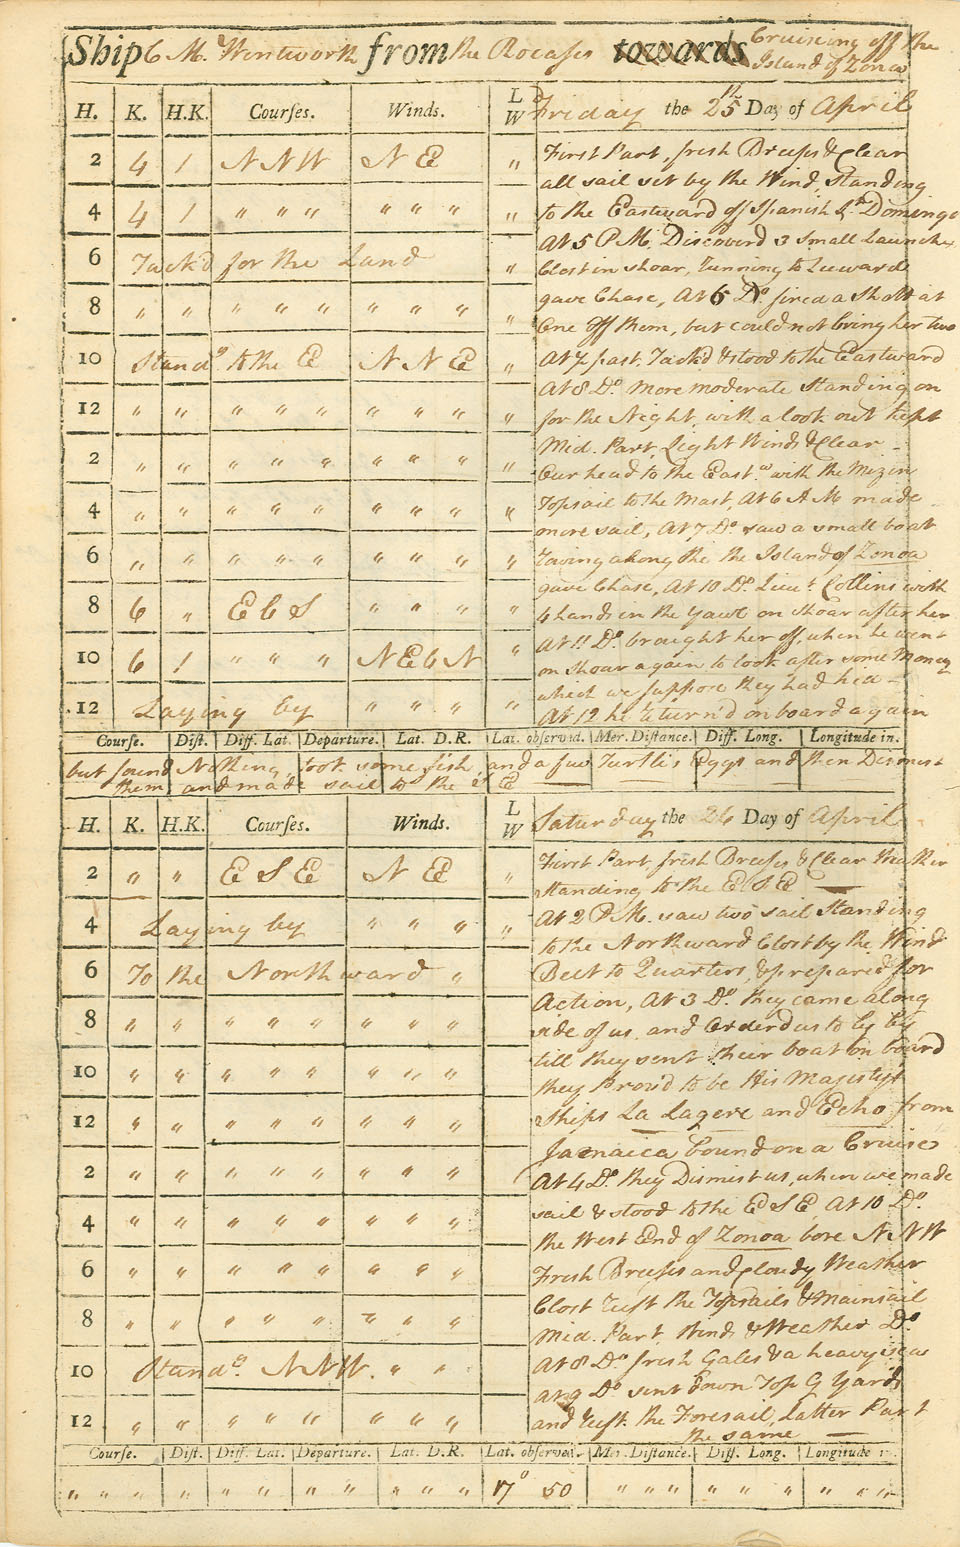 Ship C M. Wentworth from the Rocases towards Cruising off the
Island of Zonoa
H. K. H.K. Courses. Winds. L W Friday the 25th Day of April
2 4 1 N N W N E " First Part, fresh Breeses & Clear
all sail set by the Wind, standing
4 4 1 " " " " " " " to the Eastward off Spanish Lt. Domingo
At 5 P M. Discoverd 3 small Launches
6 Tack'd for the Land " Clost in shoar, running to Leeward
gave Chase, At 6 Do. fired a Shott at
8 " " " " " " " " " One off them, but could not bring her two
10 Standg. to the E N N E " At 7 past Tack'd & stood to the Eastward
At 8 Do. more moderate Standing on
12 " " " " " " " " " for the Night, with a look out kept
Mid. Part, Light Winds & Clear -
2 " " " " " " " " " Our head to the Eastwd. with the Mizin
4 " " " " " " " " " Topsail to the Mast, At 6 A M made
more sail, At 7 Do. saw a small boat
6 " " " " " " " " " rowing along the the Island of Zonoa
gave Chase, At 10 Do. Lieut. Collins with
8 6 " E b S " " " " 4 hands in the Yawl on shoar after her
At 11 Do. braught her off, when he went
10 6 1 " " " N E b N " on shoar again to look after some Money
which we suppose they had hid -
12 Laying by " " " " At 12 he return'd on board again
Course. Dist. Diff. Lat. Departure. Lat. D.R. Lat. observed. Mer. Distance. Diff. Long. Longitude in.
but found Nothing, took some fish, and a few Turtle's Eggs and then Dismist
them and made sail to the E
H. K. H.K. Courses. Winds. L W Saturday the 26 Day of April
2 " " E S E N E " First Part fresh Breeses & Clear Weather
standing to the E S E
4 Laying by " " " " At 2 P M. saw two sail Standing
to the Northward Clost by the Wind
6 To the Northward " Beet to Quarters, & prepared for
Action, At 3 Do. they came along
8 " " " " " " " " side of us, and Orderd us to ly by
till they sent their boat on board
10 " " " " " " " " they Provd to be His Majestys
12 " " " " " " " " Ships La Lagere and Echo from
Jamaica bound on a Cruise
2 " " " " " " " " At 4 Do. they Dismist us, when we made
sail & stood to the E S E At 10 Do.
4 " " " " " " " " the West End of Zonoa bore N N W
6 " " " " " " " " Fresh Breeses and Cloudy Weather
Clost reeft the Topsails & Mainsail
8 " " " " " " " " Mid. Part Winds & Weather Do
10 Standg. N N W. " " At 8 Do. fresh Gales & a heavy sea
at 9 Do sent down Top G Yards
12 " " " " " " " " and reeft the Foresail, Latter Part
the same
Course. Dist. Diff. Lat. Departure. Lat. D.R. Lat. observed. Mer. Distance. Diff. Long. Longitude in.
" " " " " " " " " " " " " " 17° 50 " " " " " " " " "